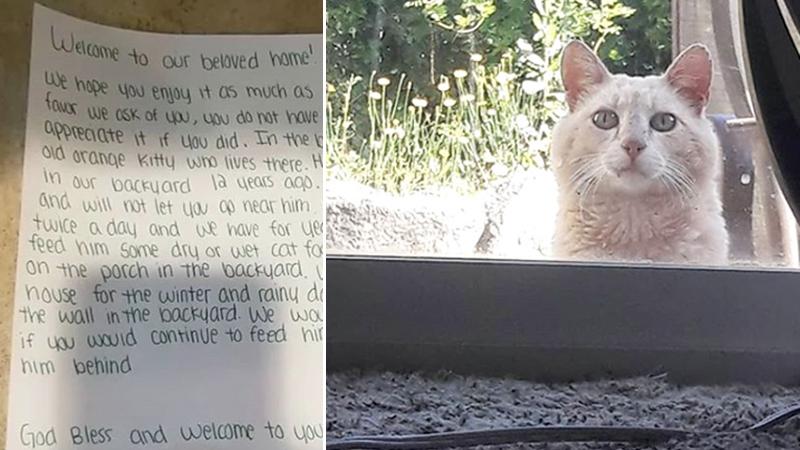 Welcome to our beloved home!
We hope you enjoy it as much as
favor we ask of you, you do not have
appreciate it if you did. In the
old orange kitty who lives there.
in our backyard 12 years ago.
and will not let you go near him
twice a day and we have for
feed him some dry or wet cat
on the porch in the backyard.
house for the winter and rainy
the wall in the backyard. We
if you would continue to feed
him behind
God Bless and welcome to